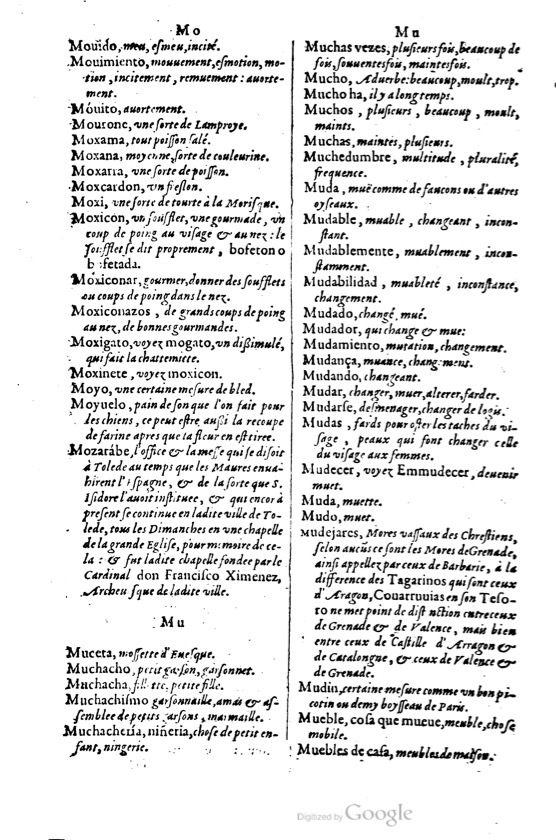 Mo
Mouido, meu, esmeu, incité.
Mouimiento, mouuement, esmotion, mo-
tion, incitement, remuement: auorte-
ment.
Móuito, auortement.
Mourone, vne sorte de Lamproye.
Moxama, tout poisson salé.
Moxana, moyenne sorte de couleurine.
Moxarra, vne sorte de poisson.
Moxcardon, vn freslon.
Moxi, vne sorte de tourte à la Morisque.
Moxicon, vn soufflet, vne gourmade, vn
coup de poing au visage & au nez: le
soufflet se dit proprement, bofeton o
bofetada.
Moxiconar, gourmer, donner des soufflets
ou coups de poing dans le nez.
Moxiconazos, de grands coups de poing
au nez, de bonnes gourmandes.
Moxigato, voyez mogato, vn dißimulé,
qui fait la chattemitte.
Moxinete, voyez moxicon.
Moyo, vne certaine mesure de bled.
Moyuelo, pain de son que l'on fait pour
les chiens, ce peut estre außi la recoupe
de farine apres que la fleur en est tiree.
Mozarábe, l'office & la messe qui se disoit
à Tolede au temps que les Maures enua-
hirent l'Espagne, & de la sorte que S.
Isidore l'auoit instituee, & qui encor à
present se continue en ladite ville de To-
lede, tous les Dimanches en vne chapelle
de la grande Eglise, pour memoire de ce-
la: & fut ladite chapelle fondee par le
Cardinal don Francisco Ximenez,
Archeuesque de ladite ville.
Mu
Muceta, mossette d'Euesque.
Muchacho, petit garson, garsonnet.
Muchacha, fillette, petite fille.
Muchachismo garsonnaille, amas & as-
semblee de petits garsons, marmaille.
Muchacheria, niñeria, chose de petit en-
fant, ningerie.
Mu
Muchas vezes, plusieurs fois, beaucoup de
fois, souuentesfois, maintesfois.
Mucho, Aduerbe: beaucoup, moult, trop.
Mucho ha, il y a long temps.
Muchos, plusieurs, beaucoup, moult,
maints.
Muchas, maintes, plusieurs.
Muchedumbre, multitude, pluralité,
frequence.
Muda, muë comme de faucons ou d'autres
oyseaux.
Mudable, muable, changeant, incon-
stant.
Mudablemente, muablement, incon-
stamment.
Mudabilidad, muableté, inconstance,
changement.
Mudado, changé, mué.
Mudador, qui change & mue:
Mudamiento, mutation, changement.
Mudança, muance, changement.
Mudando, changeant.
Mudar, changer, muer, alterer, farder.
Mudarse, desmenager, changer de logis.
Mudas, fards pour oster les taches du vi-
sage, peaux qui font changer celle
du visage aux femmes.
Mudecer, voyez Emmudecer, deuenir
muet.
Muda, muette.
Mudo, muet.
Mudejares, Mores vassaux des Chrestiens,
selon aucũs ce sont les Mores de Grenade,
ainsi appellez par ceux de Barbarie, à la
difference des Tagarinos qui sont ceux
d'Aragon, Couarruuias en son Teso-
ro ne met point de distinction entre ceux
de Grenade & de Valence, mais bien
entre ceux de Castille d'Arragon &
de Catalongne, & ceux de Valence &
de Grenade.
Mudin, certaine mesure comme vn bon pi-
cotin ou demy boysseau de Paris.
Mueble, cosa que mueue, meuble, chose
mobile.
Muebles de casa, meubles de maison.
Digitized by Google